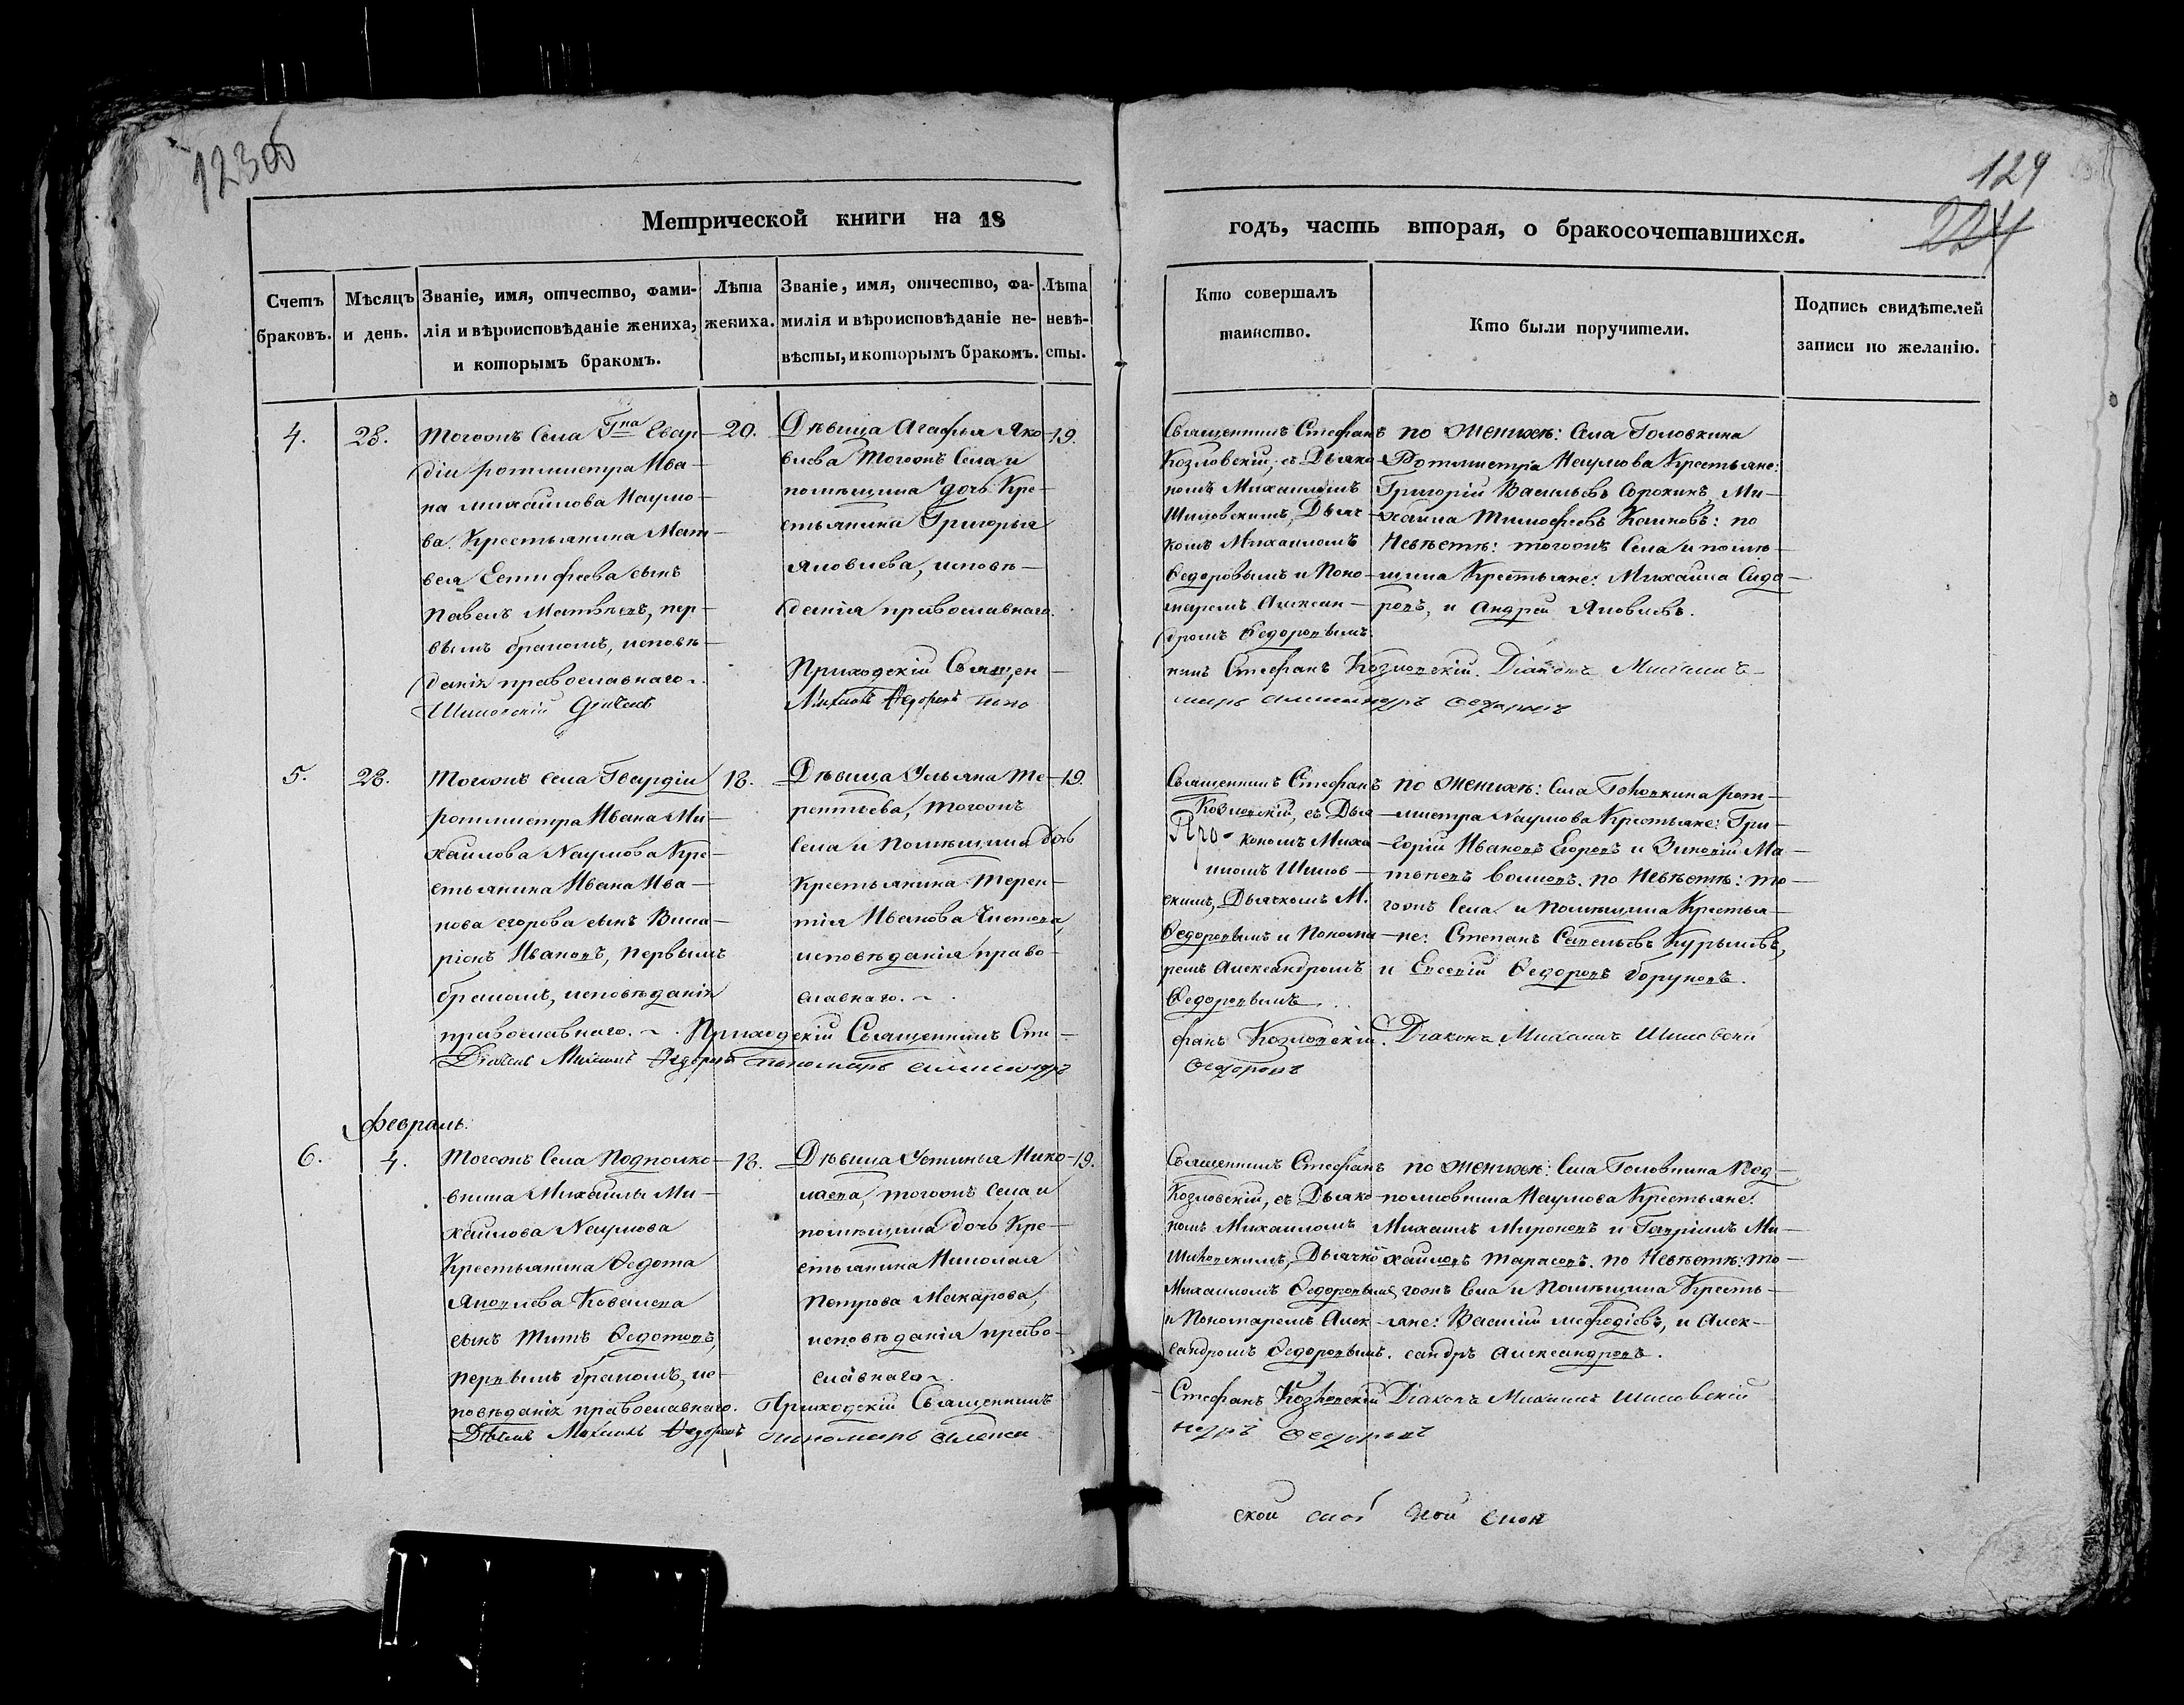 123об
129
224
Метрической книги на 18
годъ, часть вторая, о бракосочетавшихся.
Счетъ браковъ.
Мѣсяцъ и день.
Званіе, имя, отчество, фами-
лія и вѣроисповѣданіе жениха,
и которымъ бракомъ.
Лѣта
жениха.
Званіе, имя, отчество, фа-
милія и вѣроисповѣданіе не-
вѣсты, и которымъ бракомъ.
Лѣта
невѣ-
сты.
Кто совершалъ
таинство.
Кто были поручители.
Подпись свидѣтелей
записи по желанію.
4.
28.
Тогожъ Села Гна Гвар-
діи ротмистра Ива-
на Михайлова Наумо-
ва Крестьянина Мат-
вея сынъ
Павелъ Матвѣевъ, пер-
вымъ бракомъ, исповѣ-
данія православнаго.
20.
Дѣвица Агафья Яко-
влева Тогожъ Села и
помѣщика дочь Кре-
стьянина Григорья
Яковлева, исповѣ-
данія православнаго.
19.
Священникъ Стефанъ
Козловскій, съ Дьяко-
номъ Михаиломъ
Шиловскимъ, Дьяч-
комъ Михаиломъ
Федоровымъ и Поно-
маремъ Алексан-
дромъ Федоровымъ.
по Женихѣ: Села Головкина
Ротмистра Наумова Крестьяне:
Григорій Васильевъ Сорокинъ, Ми-
хаила Тимофеевъ : по
Невѣстѣ: тогожъ Села и помѣ-
щика Крестьяне: Михаила Сидо-
ровъ, и Андрей Яковлевъ.
Приходскій Священ-
никъ Стефанъ Козловскій. Діаконъ Михаилъ
Шиловскій Дьячекъ
Михаилъ Федоровъ поно
марь Александръ Федоровъ
5.
28.
Тогожъ Села Гвардіи
ротмистра Ивана Ми-
хайлова Наумова Кре-
стьянина Ивана Ива-
нова Егорова сынъ Вила-
ріонъ Ивановъ, первымъ
бракомъ, исповѣданія
православнаго.
18.
Дѣвица Ульяна Те-
рентьева, тогожъ
Села и Помѣщика дочь
Крестьянина Терен-
тія Иванова
исповѣданія право-
славнаго.
19.
Священникъ Стефанъ
Козловскій, съ Дья-
кономъ Миха-
иломъ Шилов-
скимъ, Дьячкомъ М.
Федоровымъ и Понома-
ремъ Александромъ
Федоровымъ
по Женихѣ: Села Головкина рот-
мистра Наумова Крестьяне: Гри-
горій Ивановъ Егоровъ и Зиновій Ма-
твеевъ Волковъ. по Невѣстѣ: то-
гожъ Села и Помѣщика Крестья-
не: Степанъ Савельевъ Курылевъ,
и Евсевій Федоровъ Боруновъ.
Приходскій Священникъ Сте-
фанъ Козловскій. Діаконъ Михаилъ Шиловскій
Дьячекъ Михаилъ Федоровъ пономарь Александръ
Федоровъ
Февраль.
6.
4.
Тогожъ Села Подполко-
вника Михайлы Ми-
хайлова Наумова
Крестьянина Федота
Яковлева
сынъ Титъ Федотовъ,
первымъ бракомъ, ис-
повѣданія православнаго.
18.
Дѣвица Устинья Нико-
лаева, тогожъ Села и
помѣщика дочь Кре-
стьянина Николая
Петрова Макарова,
исповѣданія право-
славнаго.
19.
Священникъ Стефанъ
Козловскій, съ Дьяко-
номъ Михаиломъ
Шиловскимъ, Дьячко
Михаиломъ Федоровымъ
и Пономаремъ Алек-
сандромъ Федоровымъ.
по Женихѣ: Села Головкина Под-
полковника Наумова Крестьяне:
Михаилъ Мироновъ и Гаврилъ Ми-
хайловъ Тарасовъ. по Невѣстѣ: то-
гожъ Села и Помѣщика Кресть-
яне: Василій Мефодіевъ, и Алек-
сандръ Александровъ.
Приходскій Священникъ
Стефанъ Козловскій Діаконъ Михаилъ Шиловскій
Дьячекъ Михаилъ Федоровъ пономарь Алекса
ндръ Федоровъ